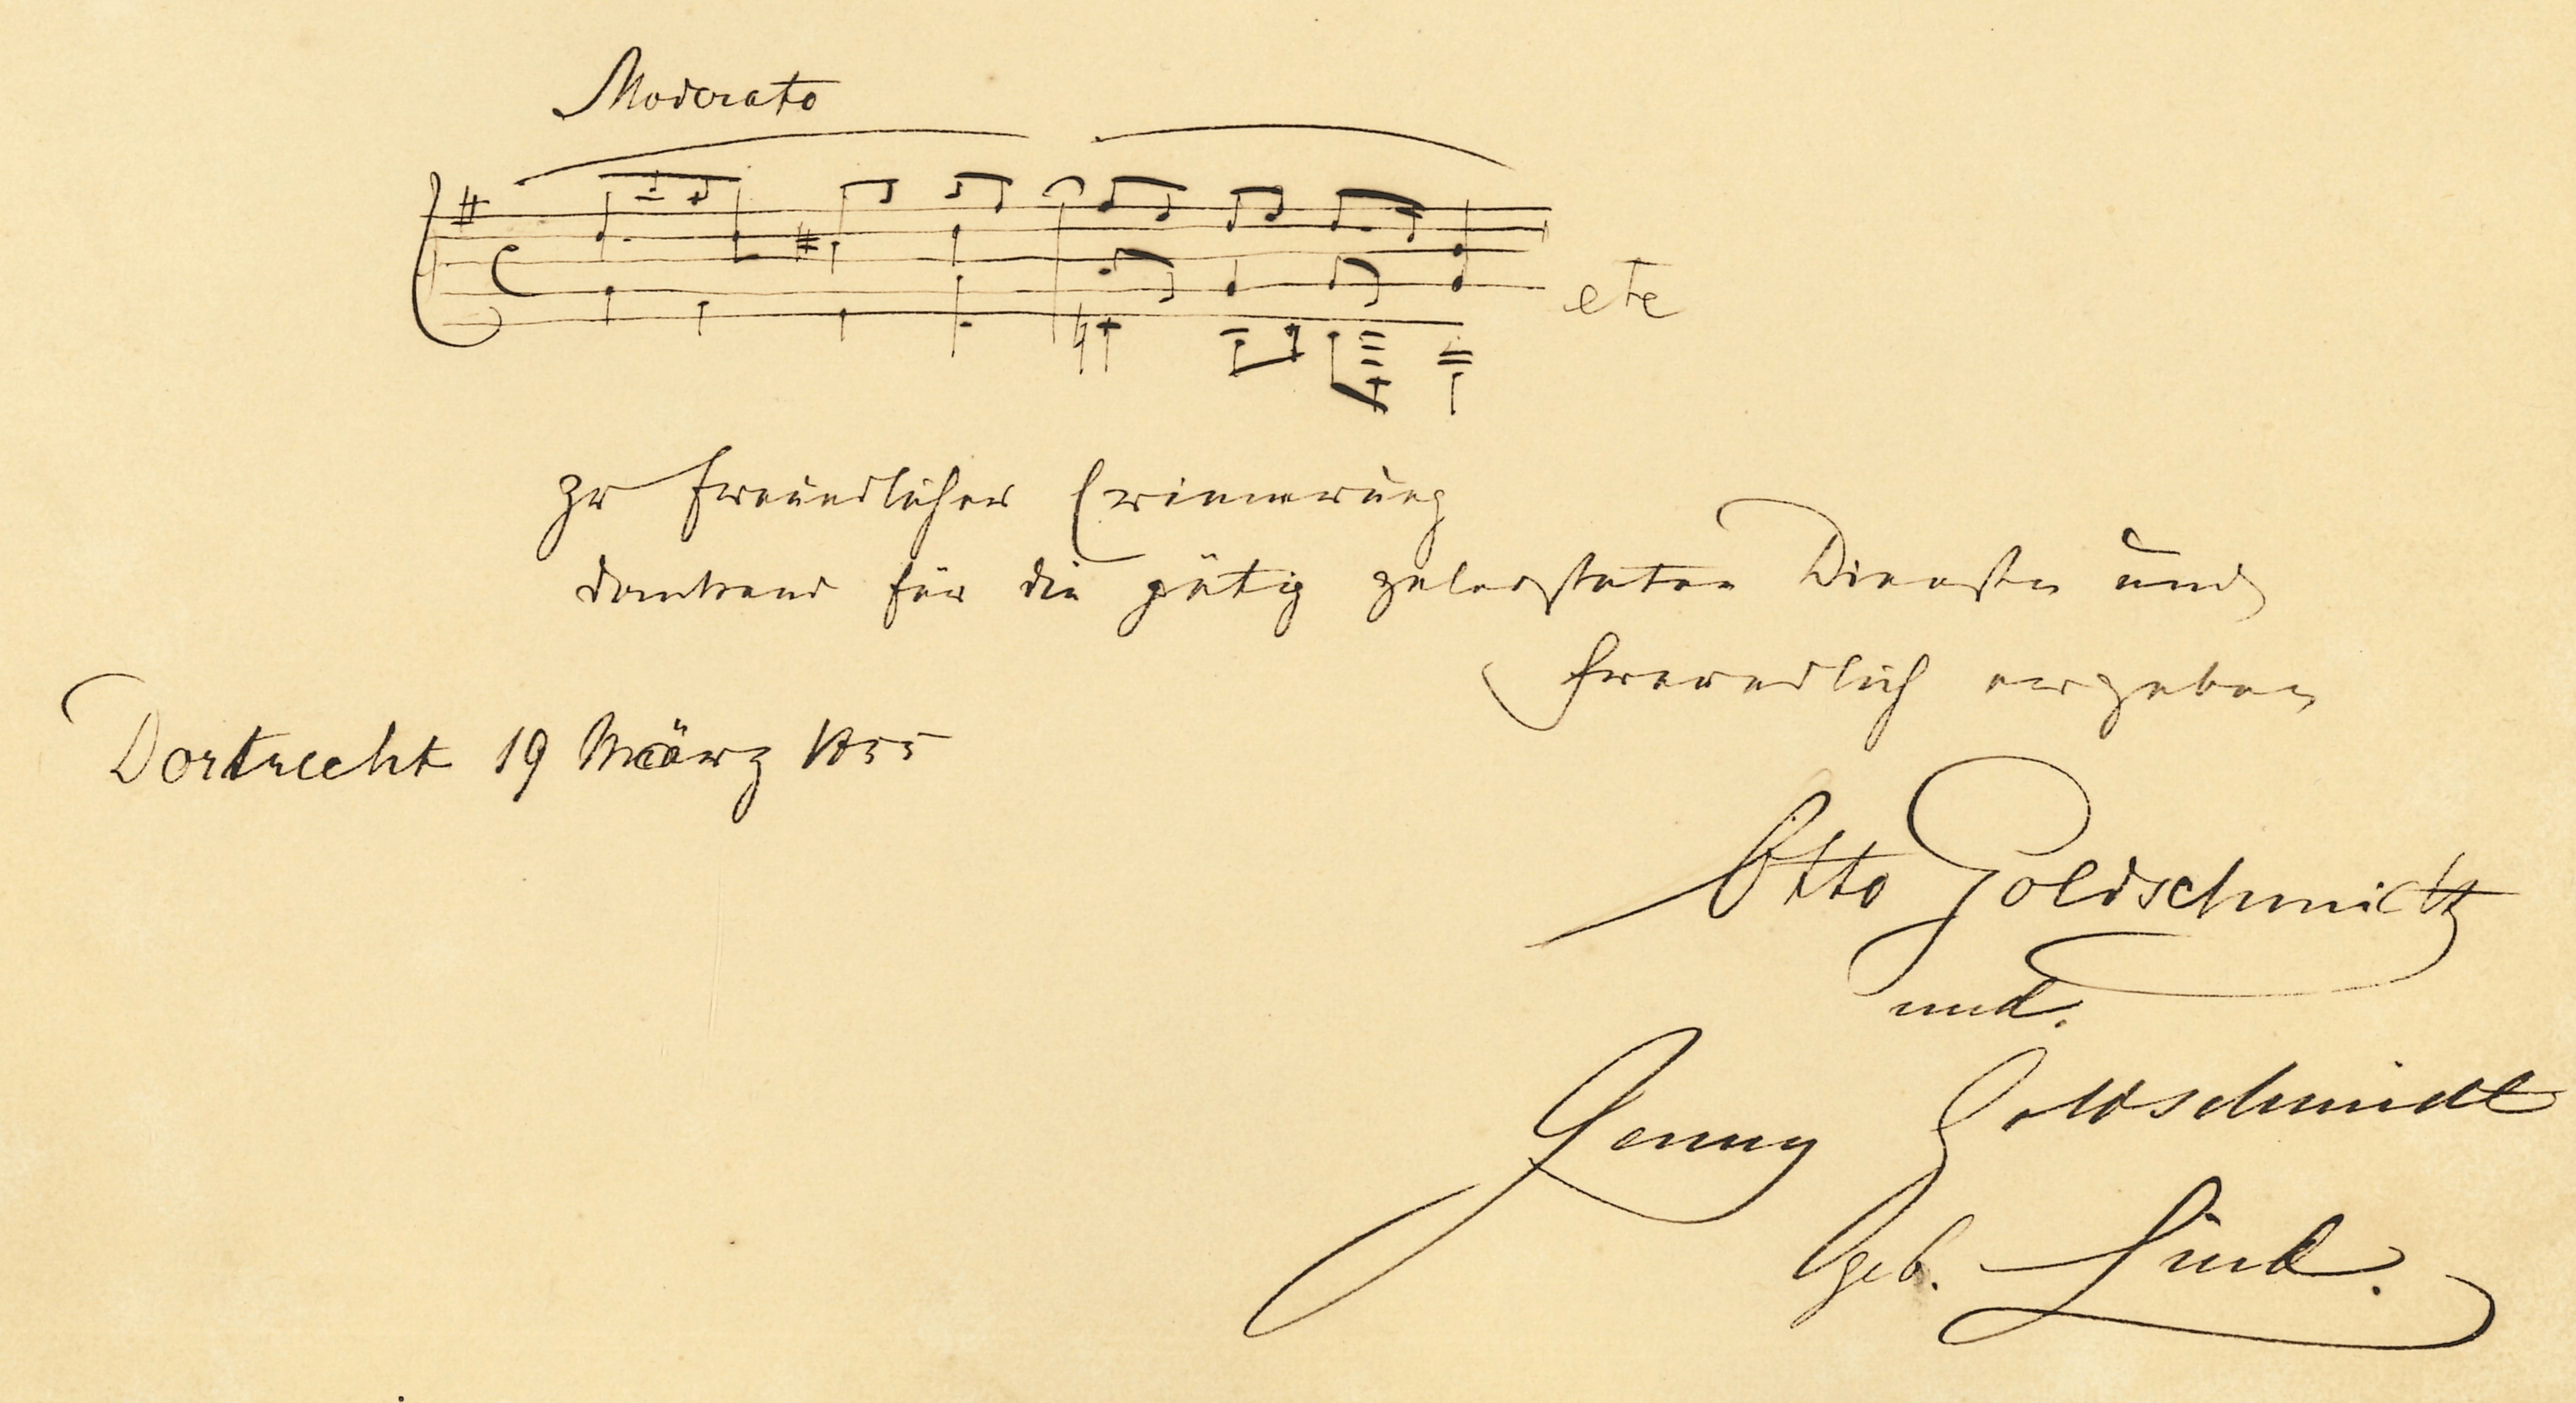 Moderato
etc
zr freundlicher Erinnerung
dankend für die gütig geleisteten Dienste und
freundlich ergeben
Dortrecht 19 März 1855
Otto Goldschmidt
und.
Jenny Goldschmidt
geb. Lind.